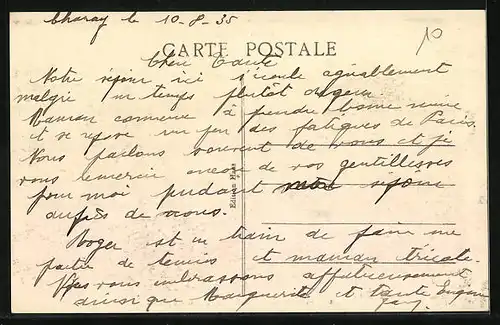 Charay le 10-8-35
10
CARTE POSTALE
Chère Tante
Notre séjour ici s'écoule agréablement
malgré un temps plutôt
Maman commence à prendre bonne mine
et se repose un peu des fatigues de Paris.
Nous parlons souvent de vous et je
vous remercie encore de vos gentillesses
pour moi pendant mon séjour
auprès de vous.
Roger est en train de faire une
partie de tennis et maman tricote.
Nous vous embrassons affectueusement
ainsi que Marguerite et tante
Edition